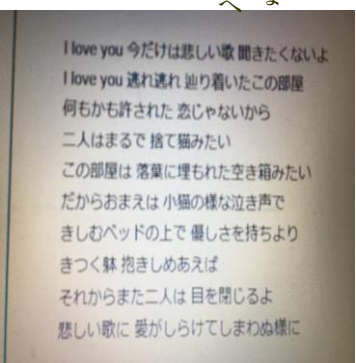 I love you 今だけは悲しい歌 聞きたくないよ
I love you 逃れ逃れ 辿り着いたこの部屋
何もかも許された 恋じゃないから
二人はまるで 捨て猫みたい
この部屋は 落葉に埋もれた空き箱みたい
だからおまえは 小猫の様な泣き声で
きしむベッドの上で 優しさを持ちより
きつく躰 抱きしめあえば
それからまた二人は 目を閉じるよ
悲しい歌に 愛がしらけてしまわぬ様に